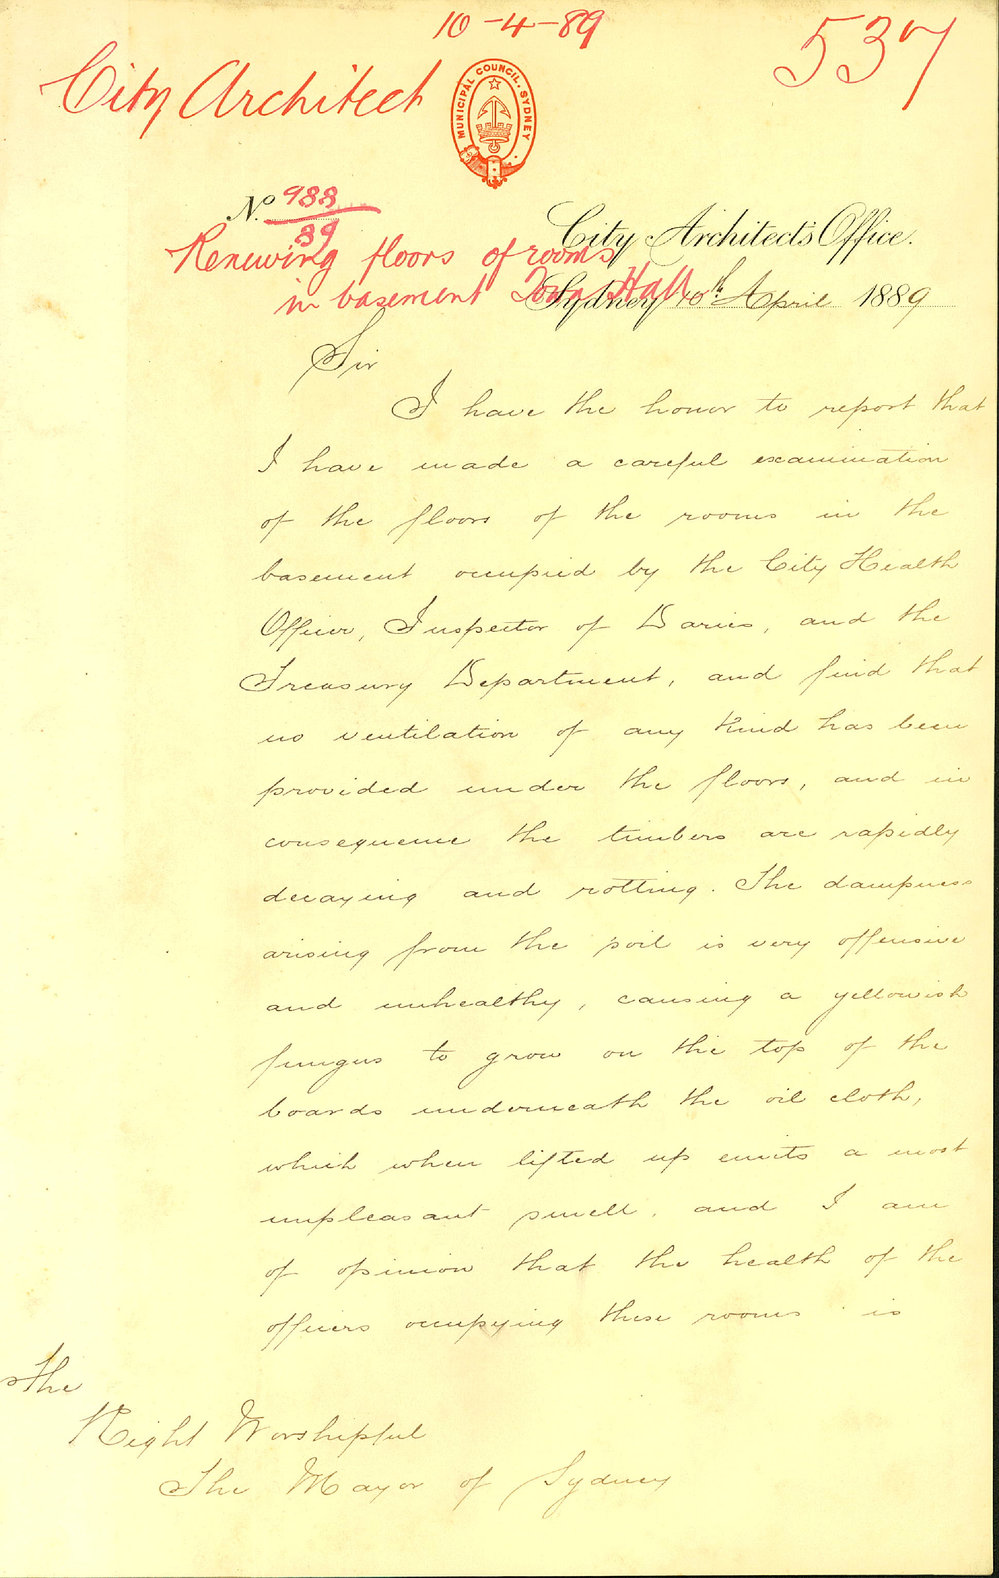 10-4-89
537
City Architect
MUNICIPAL COUNCIL. SYDNEY
No. 988
89
City Architect's Office.
Renewing floors of rooms
in basement Town Hall
Sydney 10th April 1889
Sir
I have the honor to report that
I have made a careful examination
of the floors of the rooms in the
basement occupied by the City Health
Officer, Inspector of Daries, and the
Treasury Department, and find that
no ventilation of any kind has been
provided under the floors, and in
consequence the timbers are rapidly
decaying and rotting. The dampness
arising from the soil is very offensive
and unhealthy, causing a yellowish
fungus to grow on the top of the
boards underneath the oil cloth,
which when lifted up emits a most
unpleasant smell, and I am
of opinion that the health of the
officers occupying these rooms is
The
Right Worshipful
The Mayor of Sydney